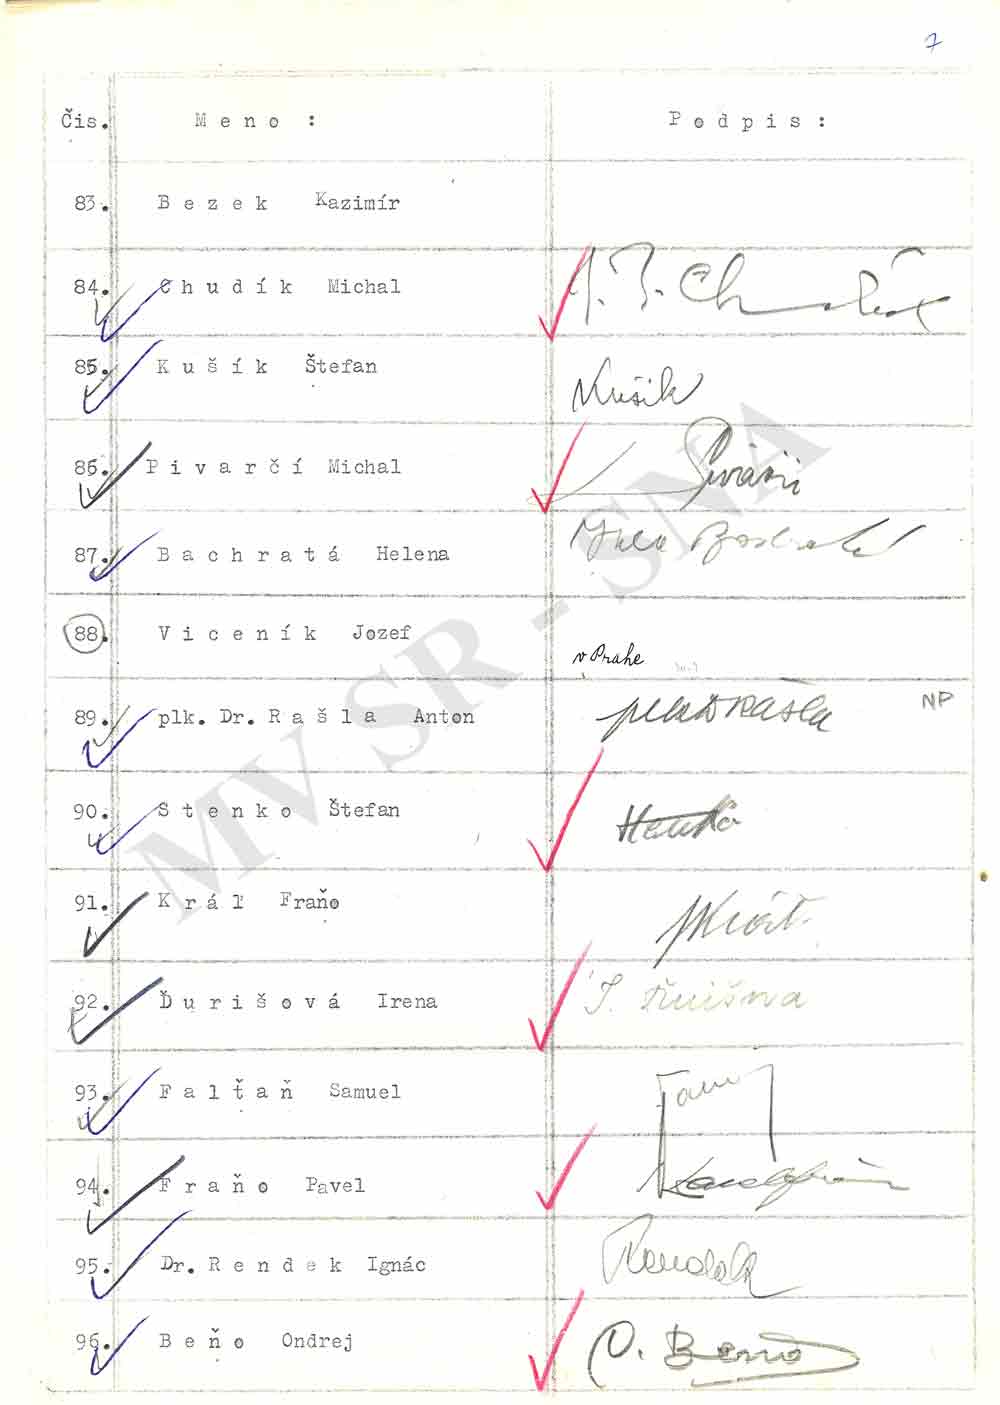 7
Čis. Meno: Podpis:
83. Bezek Kazimír
84. Chudík Michal
85. Kušík Štefan Kušik
86. Pivarčí Michal
87. Bachratá Helena
88. Viceník Jozef v Prahe
89. plk. Dr. Rašla Anton NP
90. Stenko Štefan
91. Kráľ Fraňo
92. Ďurišová Irena
93. Falťaň Samuel
94. Fraňo Pavel
95. Dr. Rendek Ignác Rendek
96. Beňo Ondrej O. Beňo
MV SR - SNA